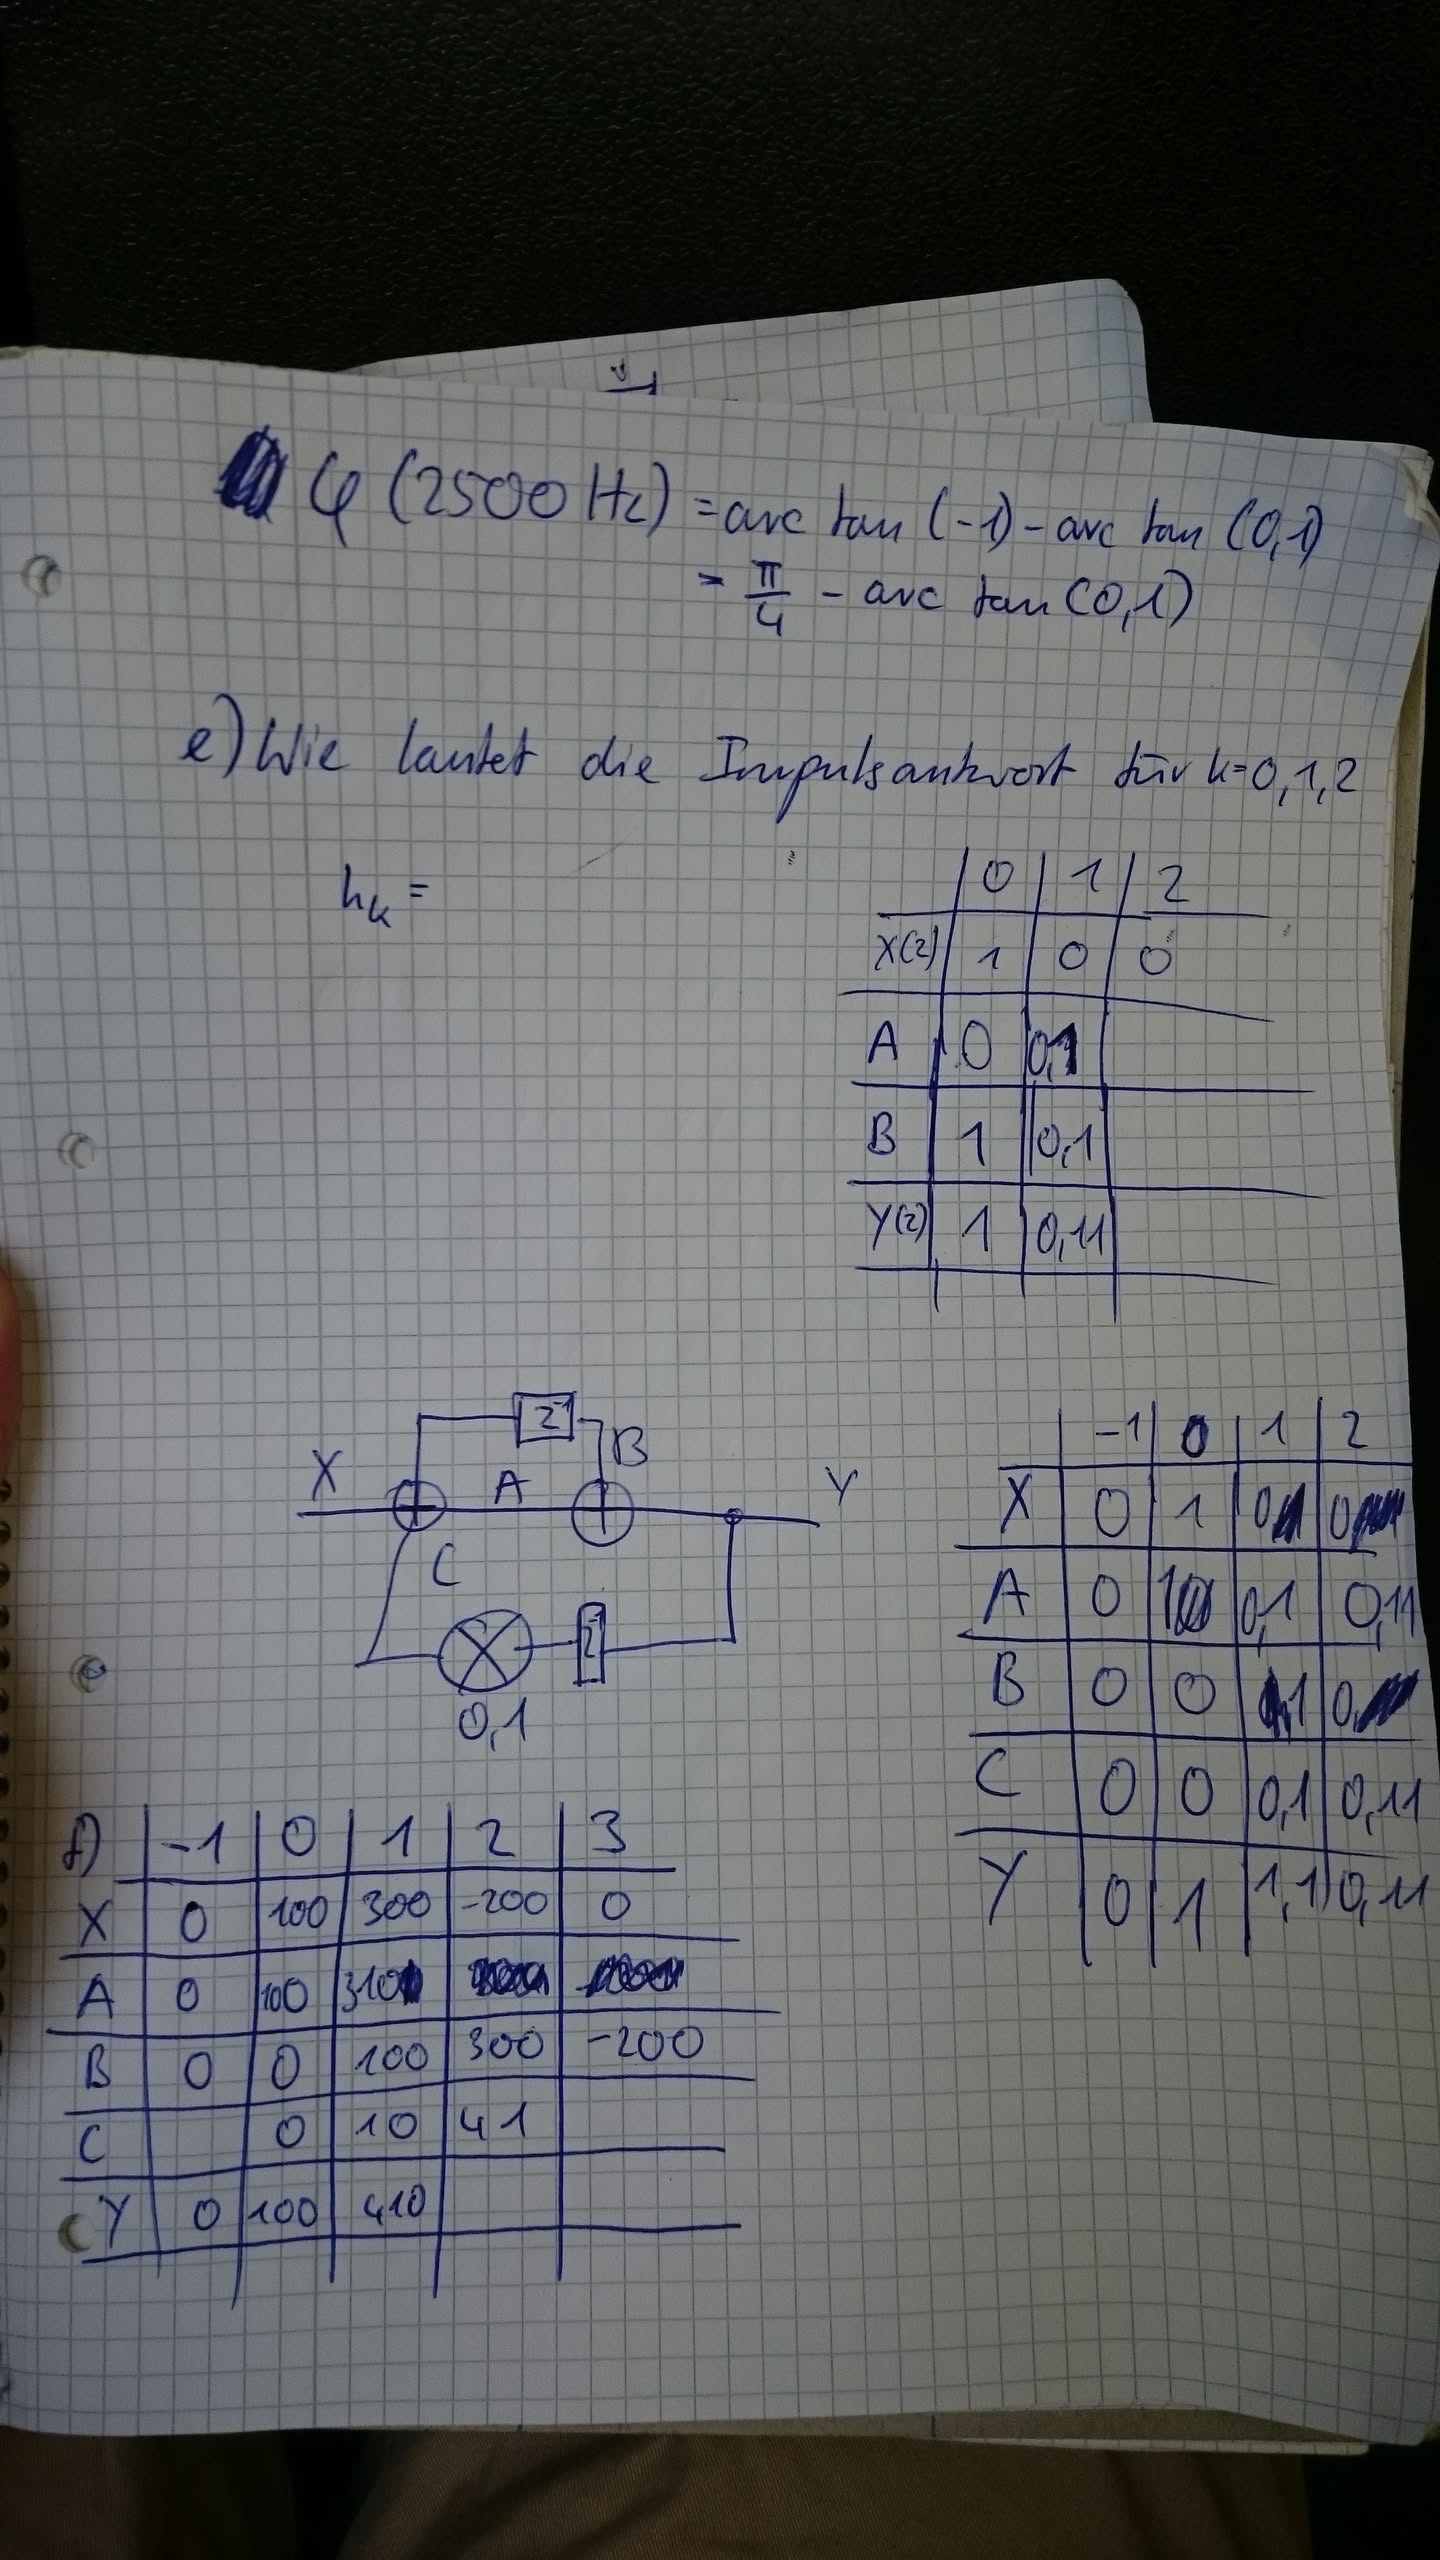 φ (2500 Hz) = arc tan (-1) - arc tan (0,1)
= π/4 - arc tan (0,1)
e) Wie lautet die Impulsantwort für k=0,1,2
h_k =
0 1 2
X(z) 1 0 0
A 0 0,1
B 1 0,1
Y(z) 1 0,11
X A B Y
z⁻¹
C
0,1
-1 0 1 2
X 0 1 0 0
A 0 1 0,1 0,11
B 0 0 1 0,
C 0 0 0,1 0,11
Y 0 1 1,1 0,11
f) -1 0 1 2 3
X 0 100 300 -200 0
A 0 100 310
B 0 0 100 300 -200
C 0 10 41
Y 0 100 410